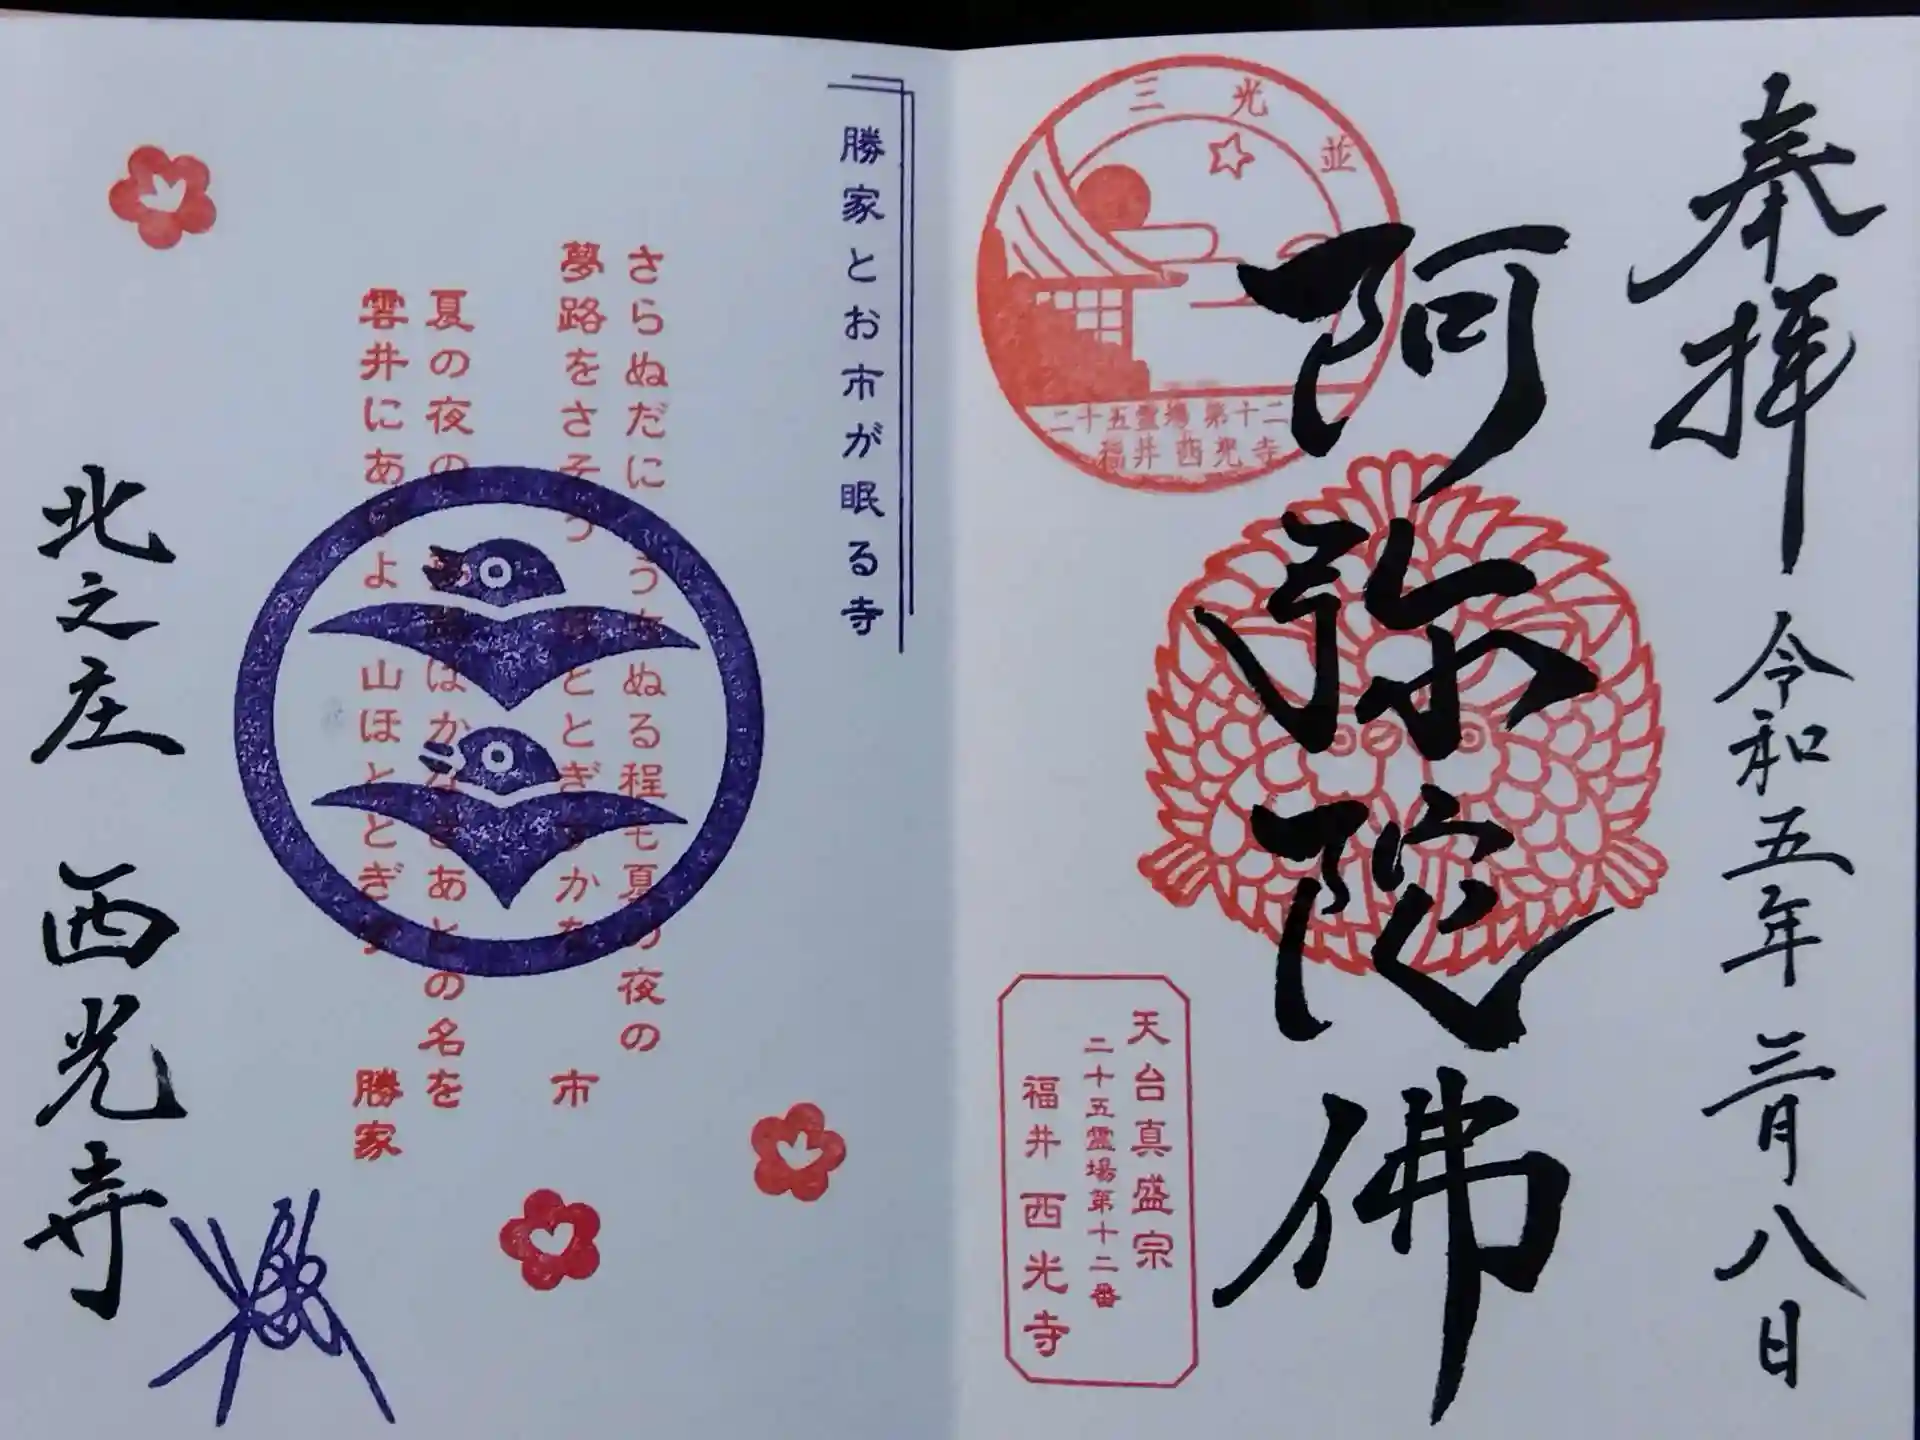 奉拝 令和五年三月八日
阿弥陀佛
三光並
二十五霊場 第十二
福井 西光寺
天台真盛宗
二十五霊場第十二番
福井 西光寺
勝家とお市が眠る寺
さらぬだに うちぬる程も夏の夜の
夢路をさそう ほととぎすかな 市
夏の夜の 夢路はかなきあとの名を
雲井にあげよ 山ほととぎす 勝家
北之庄 西光寺